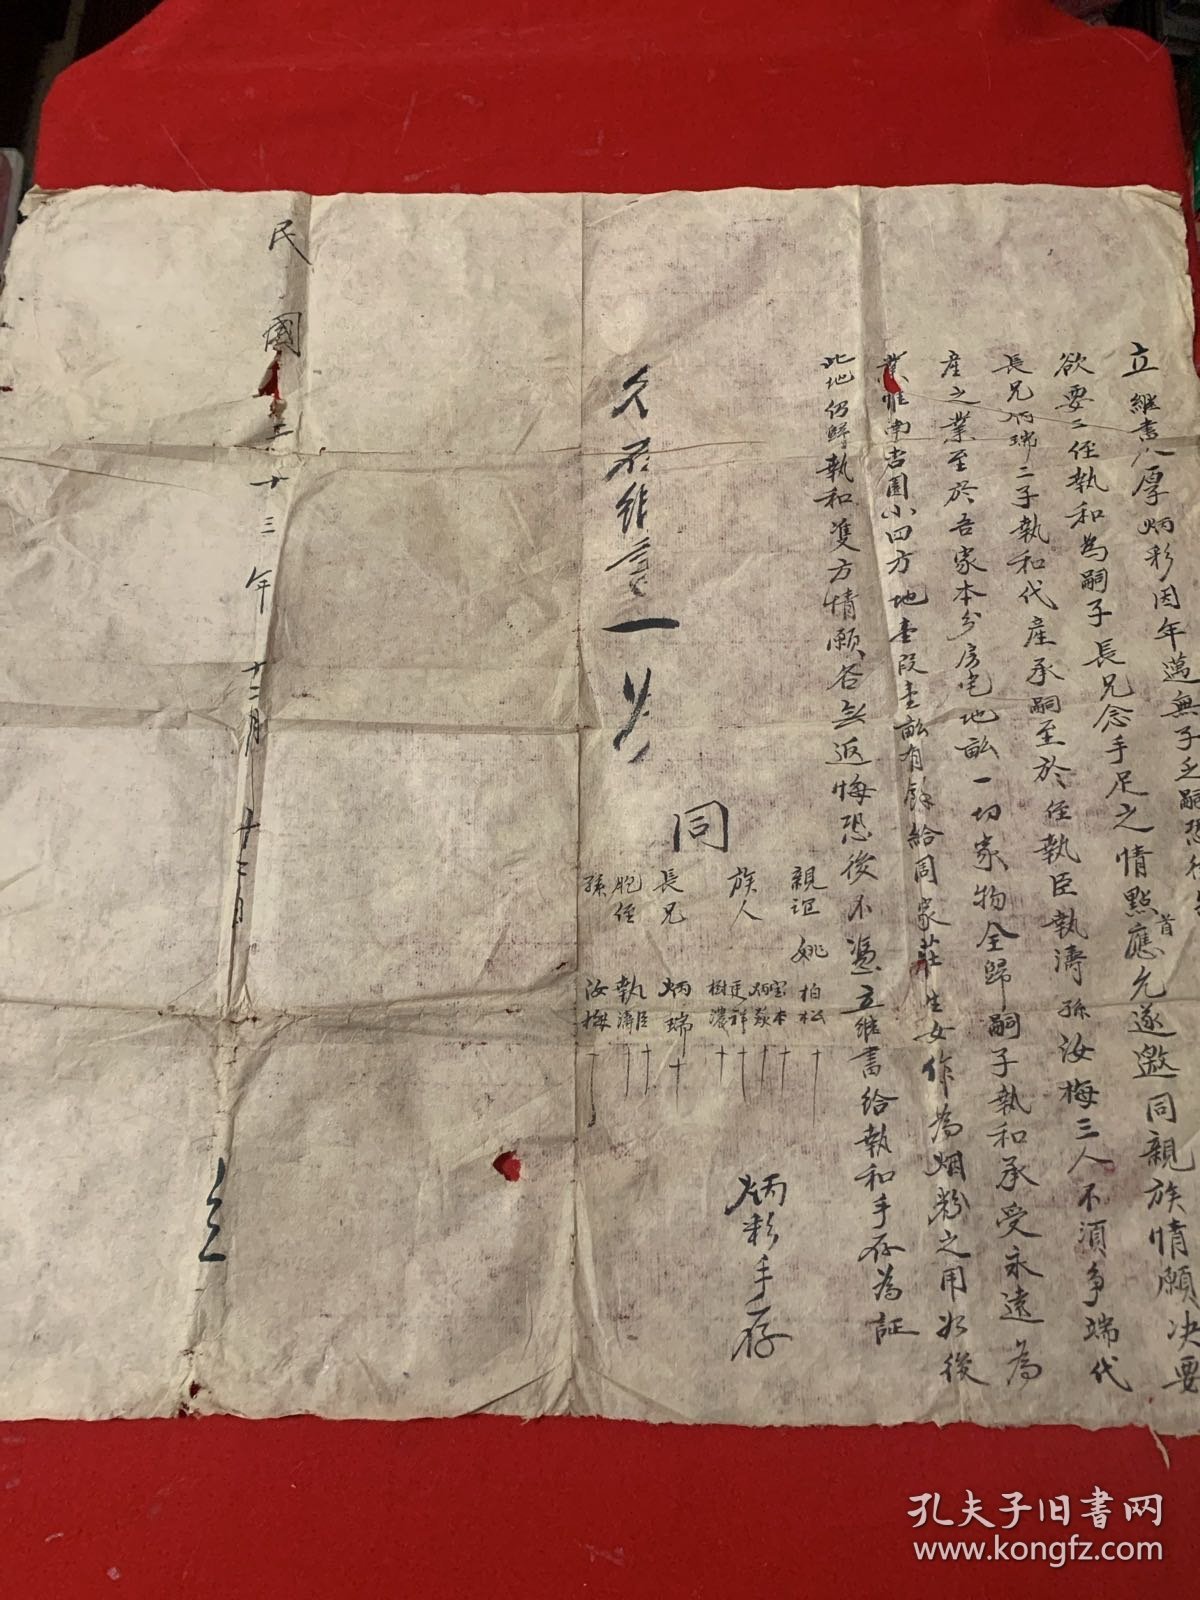 立繼書人厚炳彩因年邁無子乏嗣恐後
欲要二侄執和為嗣子長兄念手足之情點首應允遂邀同親族情願決要
長兄炳瑞二子執和代産承嗣至於侄執臣執濤孫汝梅三人不須争端代
産之業至於吾家本分房宅地畝一切家物全歸嗣子執和承受永遠為
業惟南吉園小四方地壹段壹畝有餘給周家莊生女作為烟粉之用如後
此地仍歸執和雙方情願各無返悔恐後不憑立繼書給執和手存為証
炳彩手存
同
親誼 姚柏松
族人 宝本 炳 廷祥 樹濃
長兄 炳瑞
胞侄 執臣 執濤
孫 汝梅
民國三十三年十二月十三日
立
孔夫子旧书网
www.kongfz.com